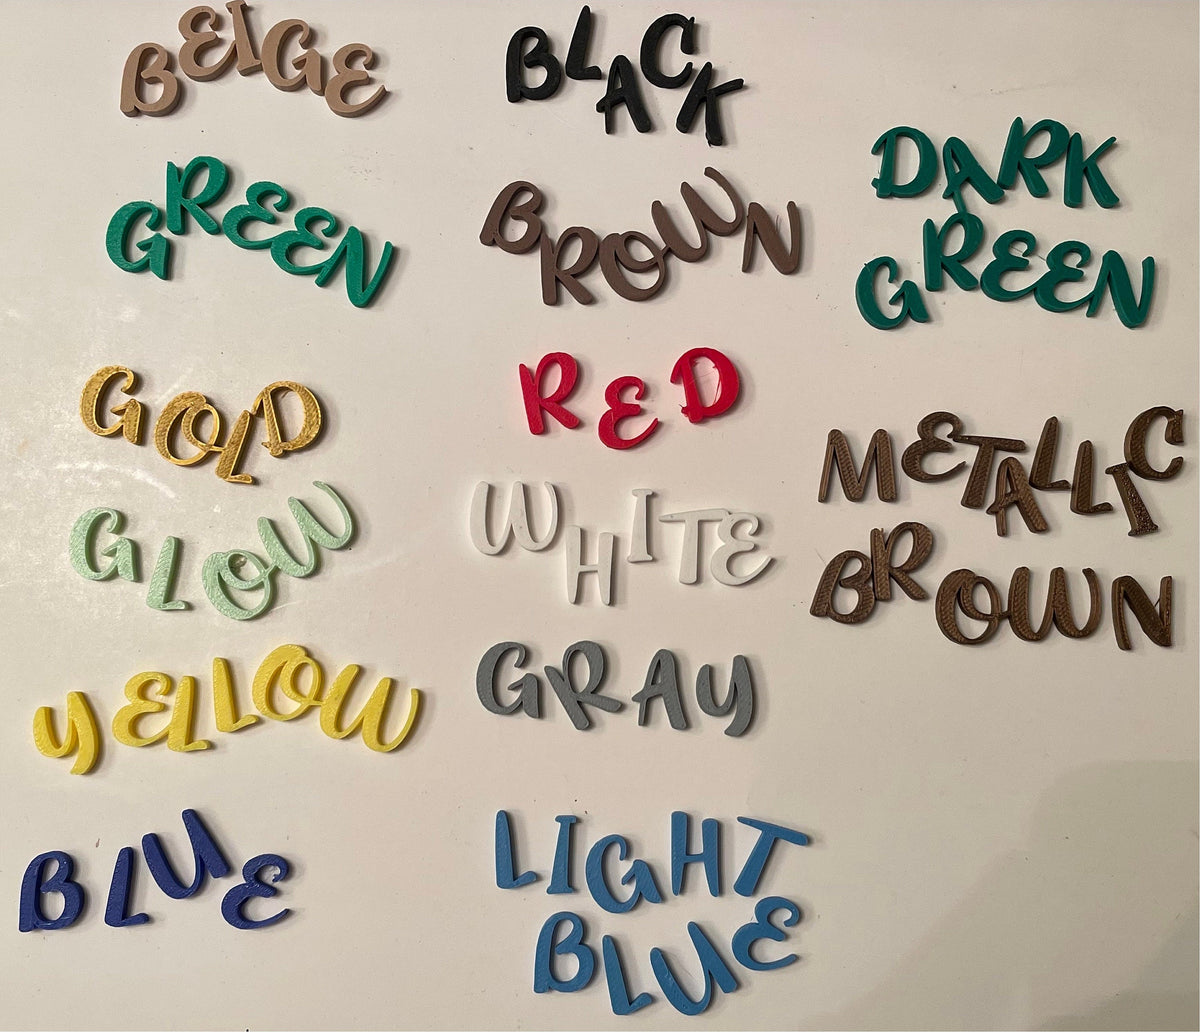 BEIGE
BLACK
GREEN
BROWN
DARK
GREEN
GOLD
RED
METALLIC
BROWN
GLOW
WHITE
YELLOW
GRAY
BLUE
LIGHT
BLUE